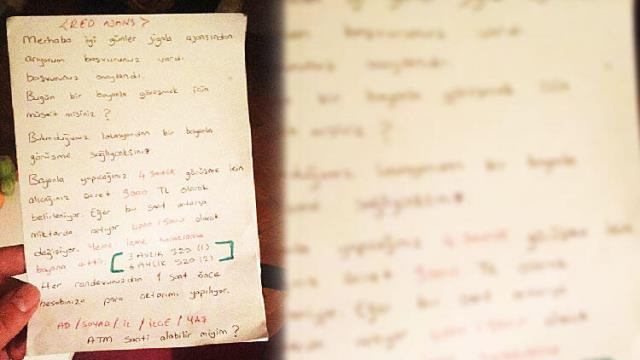 <RED AJANS>
Merhaba iyi günler jigolo ajansından
arıyorum başvurunuz vardı
başvurunuz onaylandı.
Bugün bir bayanla görüşmek için
müsait misiniz?
Bulunduğunuz lokasyondan bir bayanla
görüşme sağlıyacaksınız
Bayanla yapacağınız 4 saatlik görüşme için
alacağınız ücret TL olarak
belirleniyor. Eğer bu saat artarsa
miktarda artıyor olarak
değişiyor. Yeme içme
bayana aittir. [3 AYLIK 320 (1)
6 AYLIK 520 (2)]
Her randevunuzdan 1 saat önce
hesabınıza para aktarımı yapılıyor.
AD/SOYAD/İL/İLÇE/YAŞ
ATM alabilir miyim?